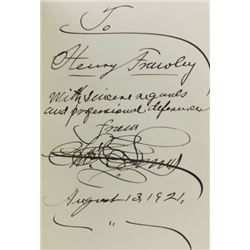 To
Henry Frawley
With sincere regards
and professional deference
from
August 13, 1921,
"